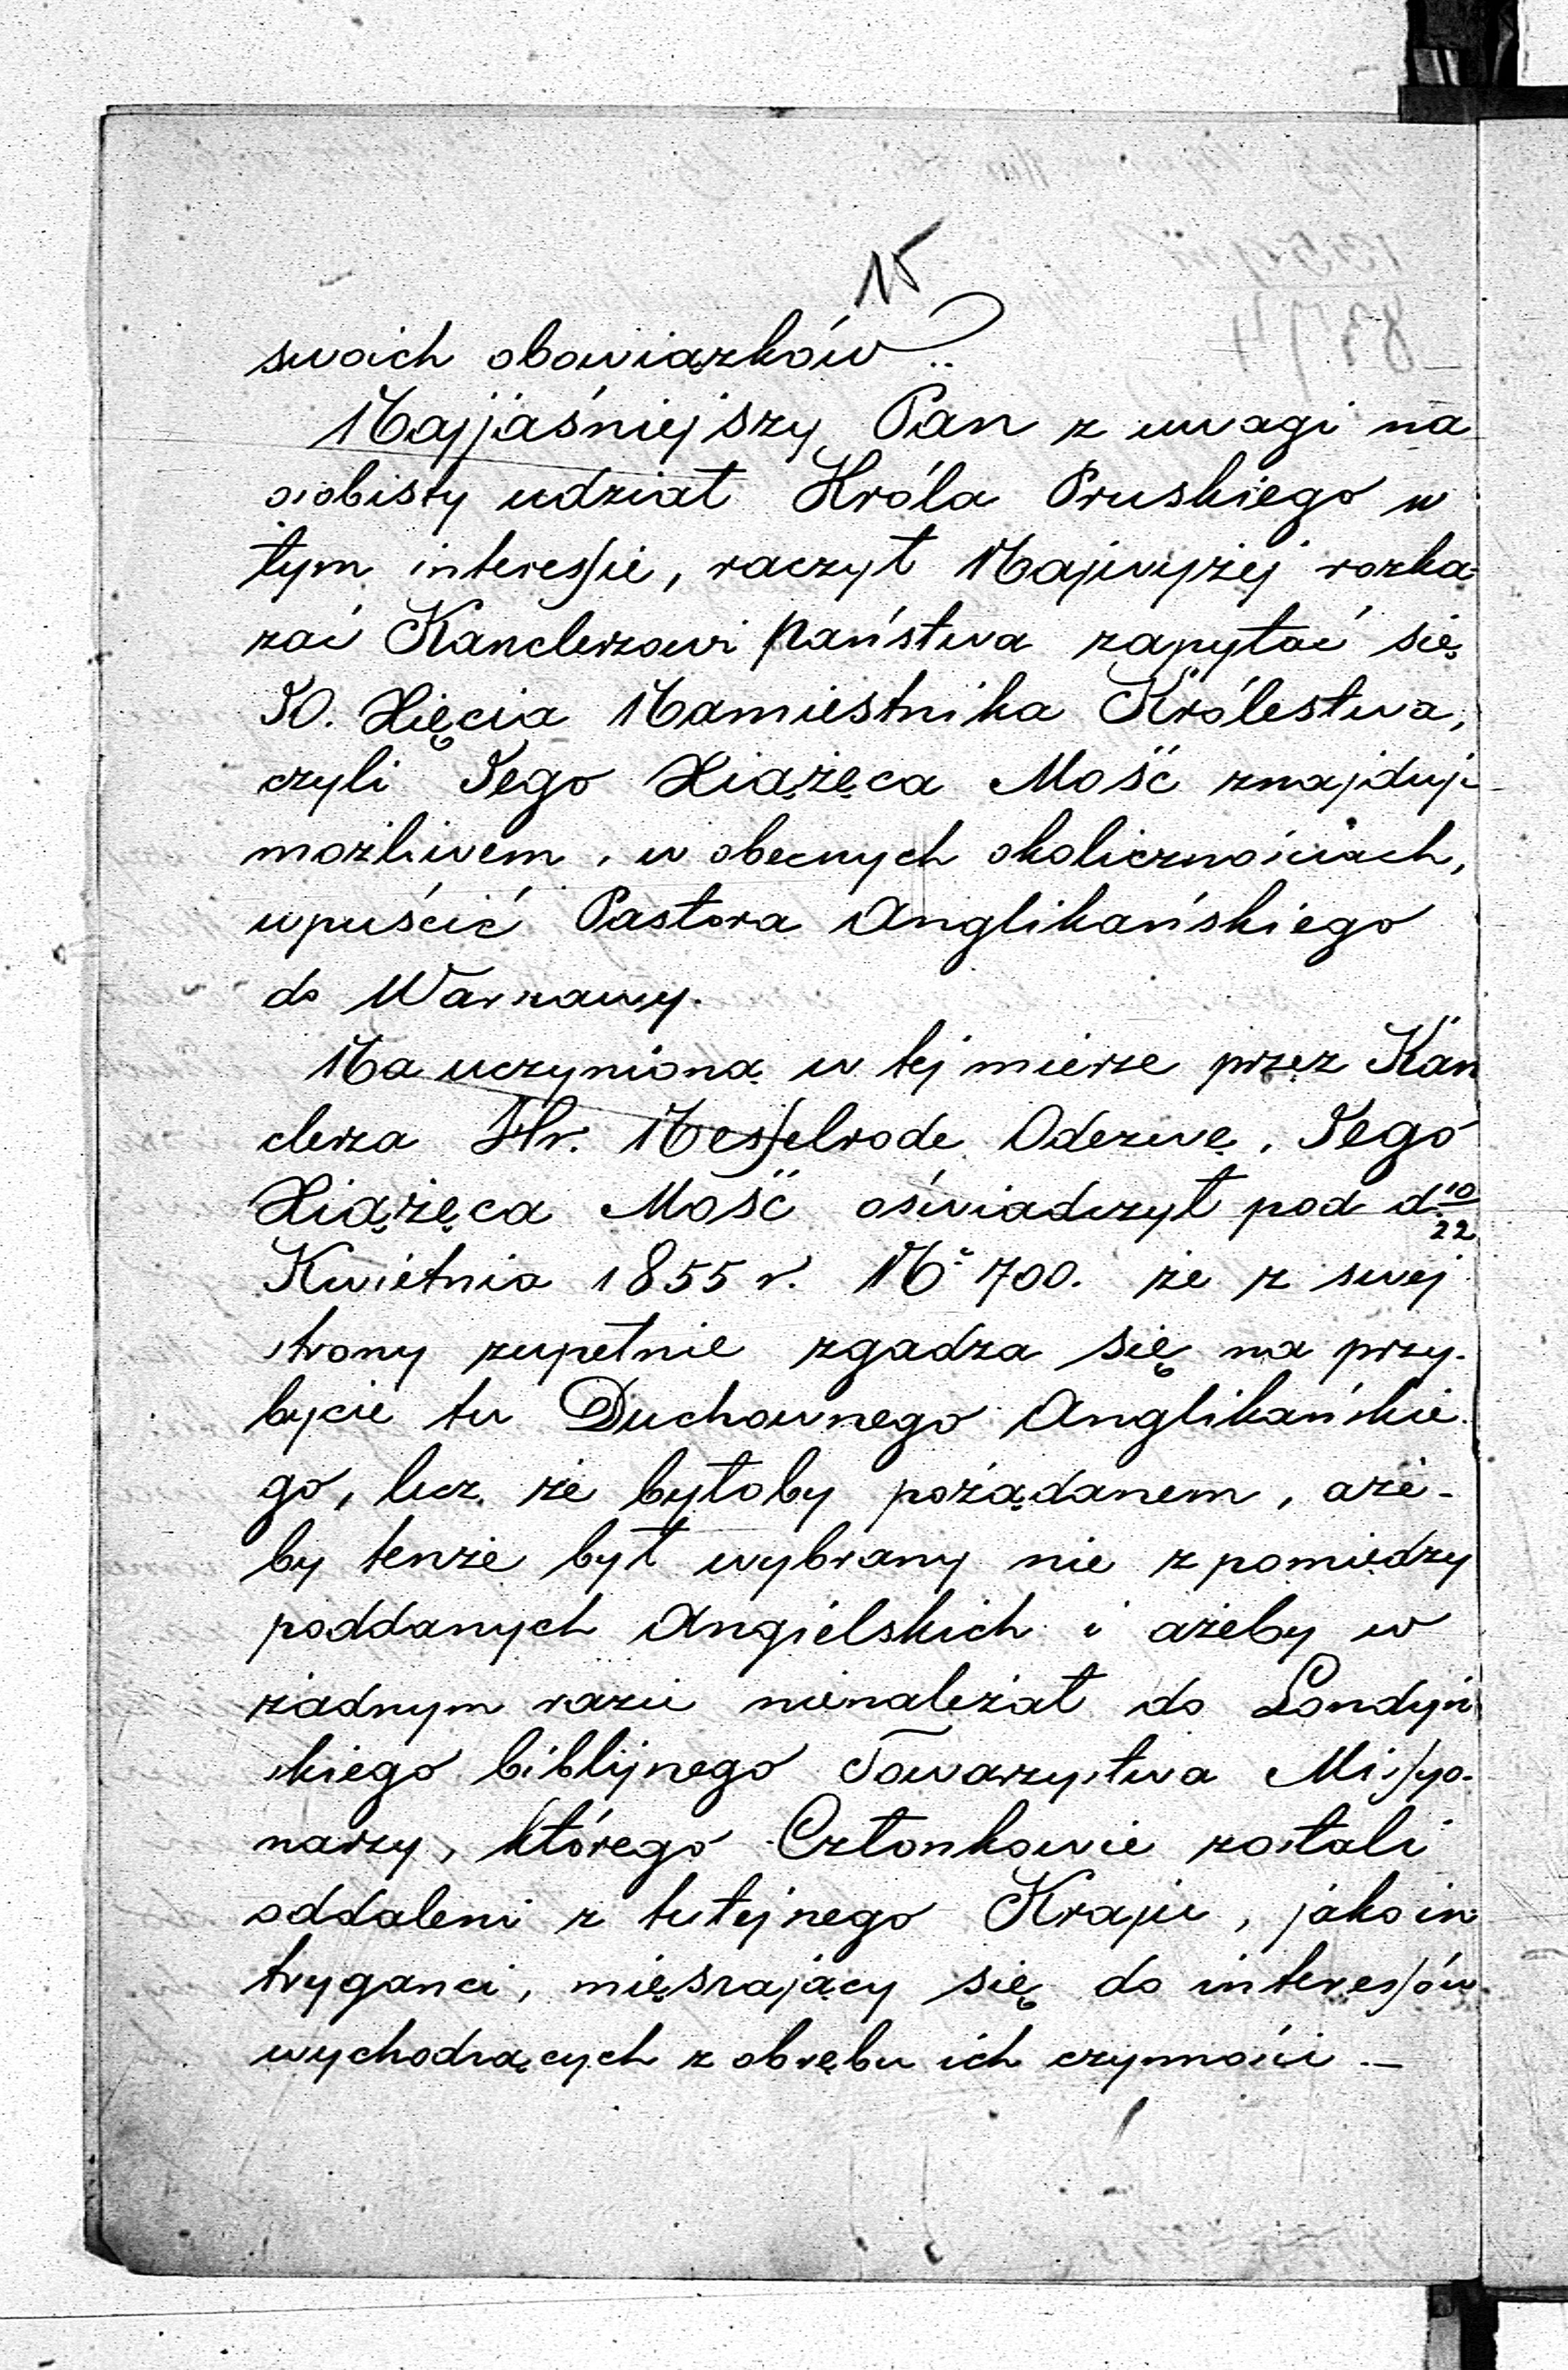 15
swoich obowiązków..
Najjaśniejszy Pan z uwagi na
osobisty udział Króla Pruskiego w
tym interessie, raczył Najwyżej rozka-
zać Kanclerzowi Państwa zapytać się
JO. Xięcia Namiestnika Królestwa,
czyli Jego Xiążęca Mość znajduje
możliwem, w obecnych okolicznościach,
wpuścić Pastora Anglikańskiego
do Warszawy.
Na uczynioną w tej mierze przez Kan
clerza Hr. Nesselrode Odezwę, Jego
Xiążęca Mość oświadczył pod d. 10/22
Kwietnia 1855 r. No 700. że z swej
strony zupełnie zgadza się na przy-
bycie tu Duchownego Anglikańskie-
go, lecz że byłoby pożądanem, aże-
by tenże był wybrany nie z pomiędzy
poddanych Angielskich i ażeby w
żadnym razie nienależał do Londyń
skiego biblijnego Towarzystwa Missyo-
narzy, którego Członkowie zostali
oddaleni z tutejnego Kraju, jako in
tryganci, mięszający się do interessów
wychodzących z obrębu ich czynności.—